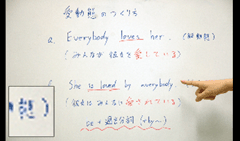 受動態のつくり方
a. Everybody loves her. (能動態)
(みんなが 彼女を 愛している)
She is loved by everybody.
(彼女は みんなに 愛されている)
be + 過去分詞 (+by~)
態)